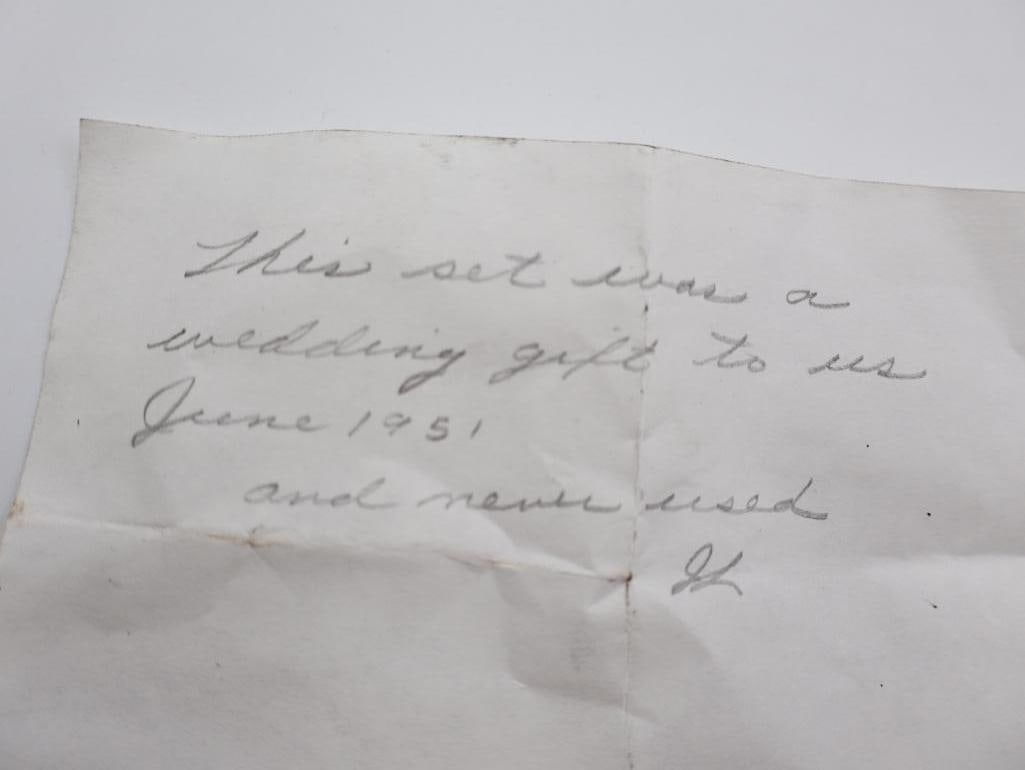 This set was a
wedding gift to us
June 1951
and never used